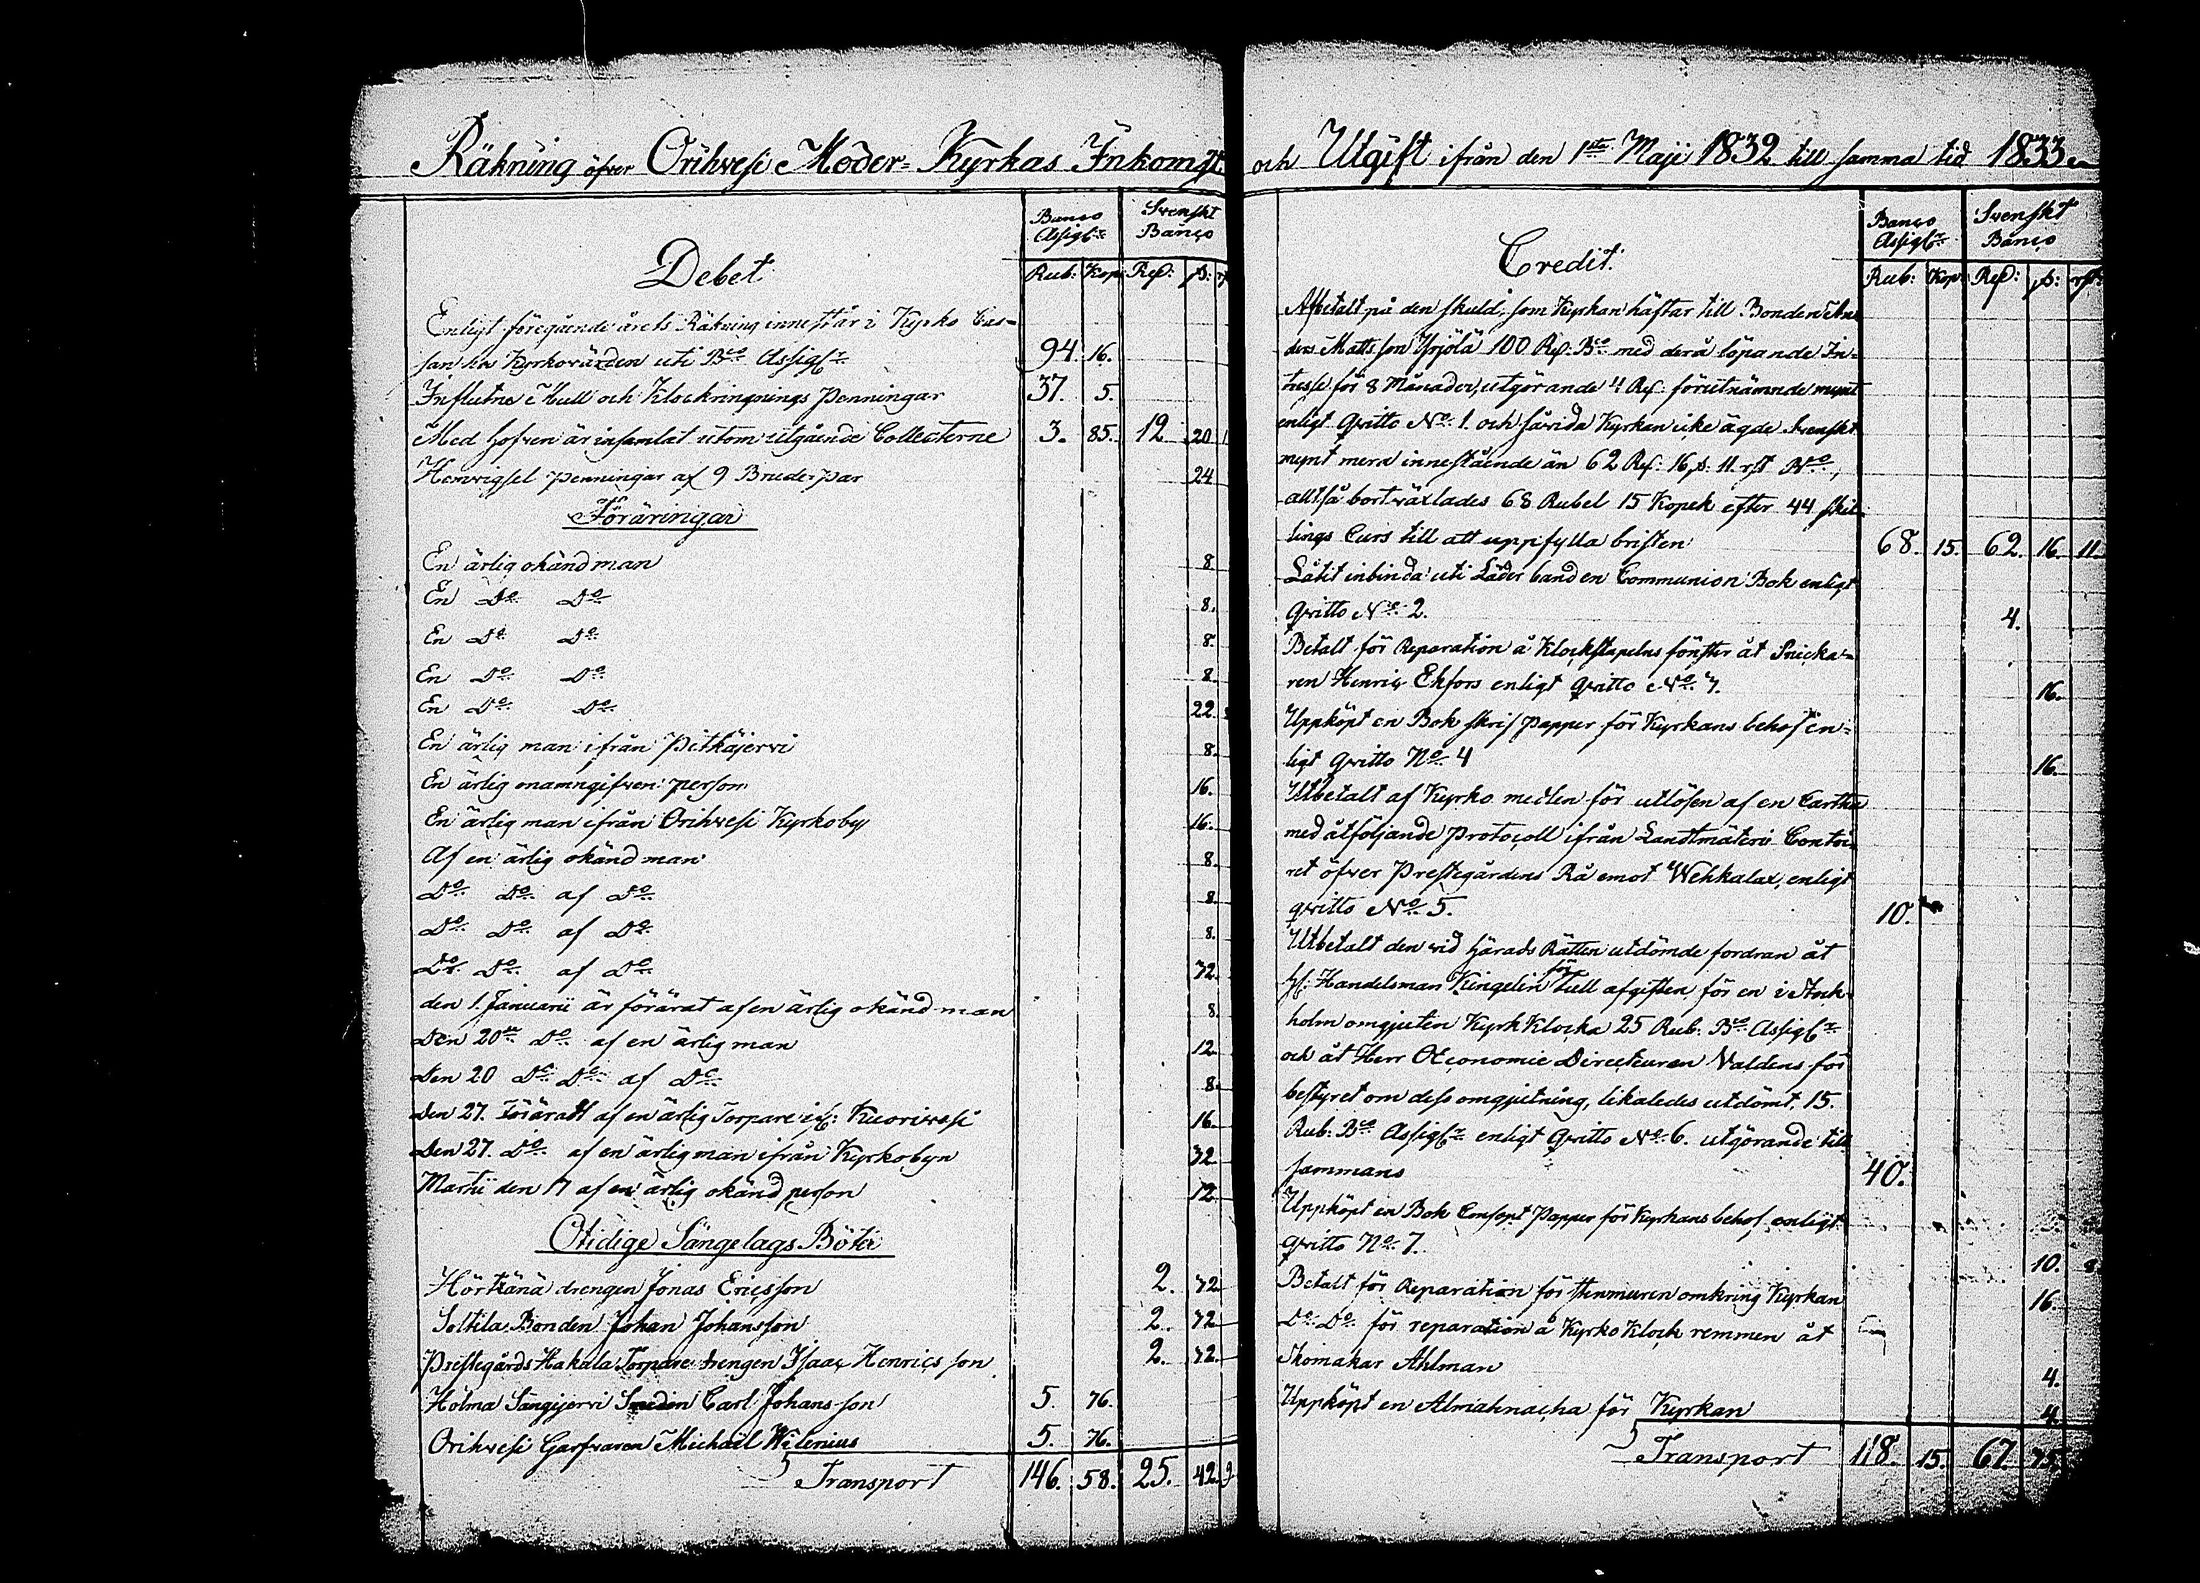 Räkning öfver Orihvesi Moder-Kyrkas Inkomst
Banco Assigtr Svenskt Banco
Debet Rub: Kop: Rd: s:
Enligt föregående årets Räkning innestår i Kyrko Cas-
san hn Kyrkovärden uti Bco Assigtr 94. 16.
Influtne Mull och Klockringnings Penningar 37. 5.
Med hofven är insamlat utom utgående Collecterne 3. 85. 12 20
Hemvigsel penningar af 9 Brudepar 24
Föräringar
En ärlig okänd man 8.
En Do Do 8.
En Do Do 8.
En Do Do 8.
En Do Do 22
En ärlig man ifrån Pitkäjervi 8.
En ärlig onamngifven person 16.
En ärlig man ifrån Orihvesi Kyrkoby 16.
Af en ärlig okänd man 8.
Do Do af Do 8.
Do Do af Do 8.
Do Do af Do 32.
den 1. Januarii är förärat af en ärlig okänd man 8.
Den 20de Do af en ärlig man 12
Den 20 Do Do af Do 8.
Den 27. Föräratt af en ärlig Torpare if: Kuorevesi 16.
Den 27. Do af en ärlig man ifrån Kyrkobyn 32
Martii den 17 af en ärlig okänd person 12
Otidige Sängelags Böter
Hörtänä drengen Jonas Ericsson 2. 32
Soltila Bonden Johan Johansson 2. 32
Prestegårds Hakala Torpare drengen Isaac Henrics son 2. 32.
Holma Sängijervi Smeden Carl Johans son 5. 76.
Orihvesi Garfvaren Michaël Wilenius 5. 76.
Transport 146. 58. 25. 42. 9
och Utgift ifrån den 1ste Maji 1832 till samma tid 1833
Banco Assigtr Svenskt Banco
Credit. Rub: Kop: Rd: s: rst:
Afbetalt på den skuld, som Kyrkan häftar till Bonden An-
ders Matts son Yrjölä 100 Rd: Bco med derå löpande In-
tresse för 8 Månader, utgörande 4 Rd: förutnämnde mynt
enligt Qvitto No 1. och såvida Kyrkan icke ägde Svenskt
mynt mera innestående än 62 Rd: 16 s: 11 rst Bco,
alltså bortväxlades 68 Rubel 15 Kopek efter 44 skil-
lings Curs till att uppfylla bristen 68. 15. 62. 16. 11.
Låtit inbinda uti Läder band en Communion Bok enligt
Qvitto No 2. 4.
Betalt för Reparation å Klockstapelns fönster åt Snicka-
ren Henric Ekfors enligt Qvitto No 3. 16.
Uppköpt en Bok skrif papper för Kyrkans behof en-
ligt Qvitto No 4 16.
Utbetalt af Kyrko medlen för utlösen af en Cartha
med åtföljande Protocoll ifrån Landtmäteri Contoi-
ret öfver Prestegårdens Rå emot Wehkalax, enligt
qvitto No 5. 10.
Utbetalt den vid Härads Rätten utdömde fordran åt
H: Handelsman Kingelin för Tull afgiften för en i Stock-
holm omgjuten Kyrk Klocka 25 Rub: Bco Assigtr
och åt Herr Oeconomie Directeuren Naldens för
bestyret om dess omgjutning, likaledes utdömt, 15.
Rub: Bco Assigtr enligt Qvitto No 6. utgörande till
sammans 40.
Uppköpt en Bok Consept Papper för Kyrkans behof enligt
Qvitto No 7. 10. 8
Betalt för Reparation för Stenmuren omkring Kyrkan 16.
Do Do för reparation å Kyrko Klock remmen åt
Skomakar Ahlman 4.
Uppköpt en Almahnacha för Kyrkan 4
Transport 118. 15. 67.